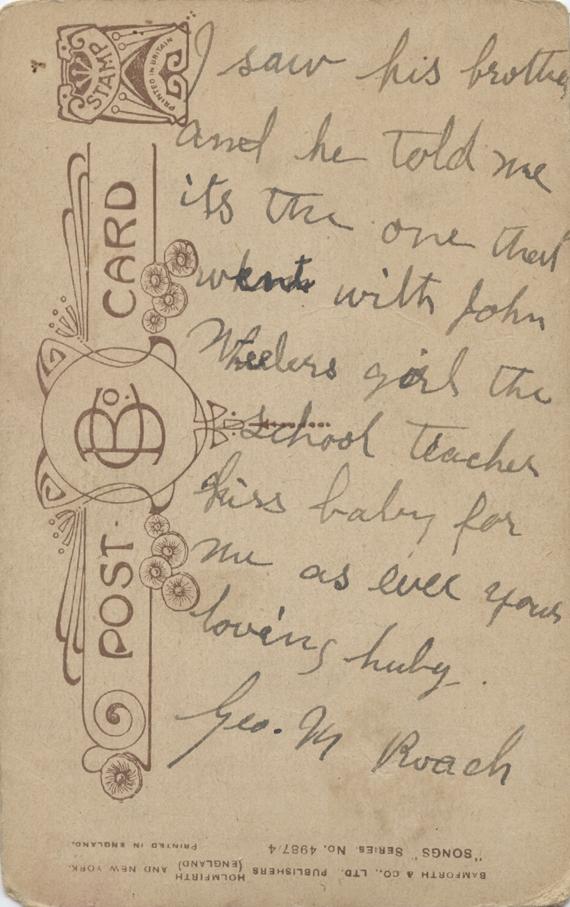 I saw his brother
and he told me
its the one that
went with John
Wheelers girl the
school teacher
Kiss baby for
me as ever yours
loving huby.
Geo. M Roach
STAMP
PRINTED IN BRITAIN
POST CARD
B Co.
BAMFORTH & CO., LTD. PUBLISHERS (ENGLAND) HOLMFIRTH AND NEW YORK.
"SONGS" SERIES NO. 4987/4 PRINTED IN ENGLAND.